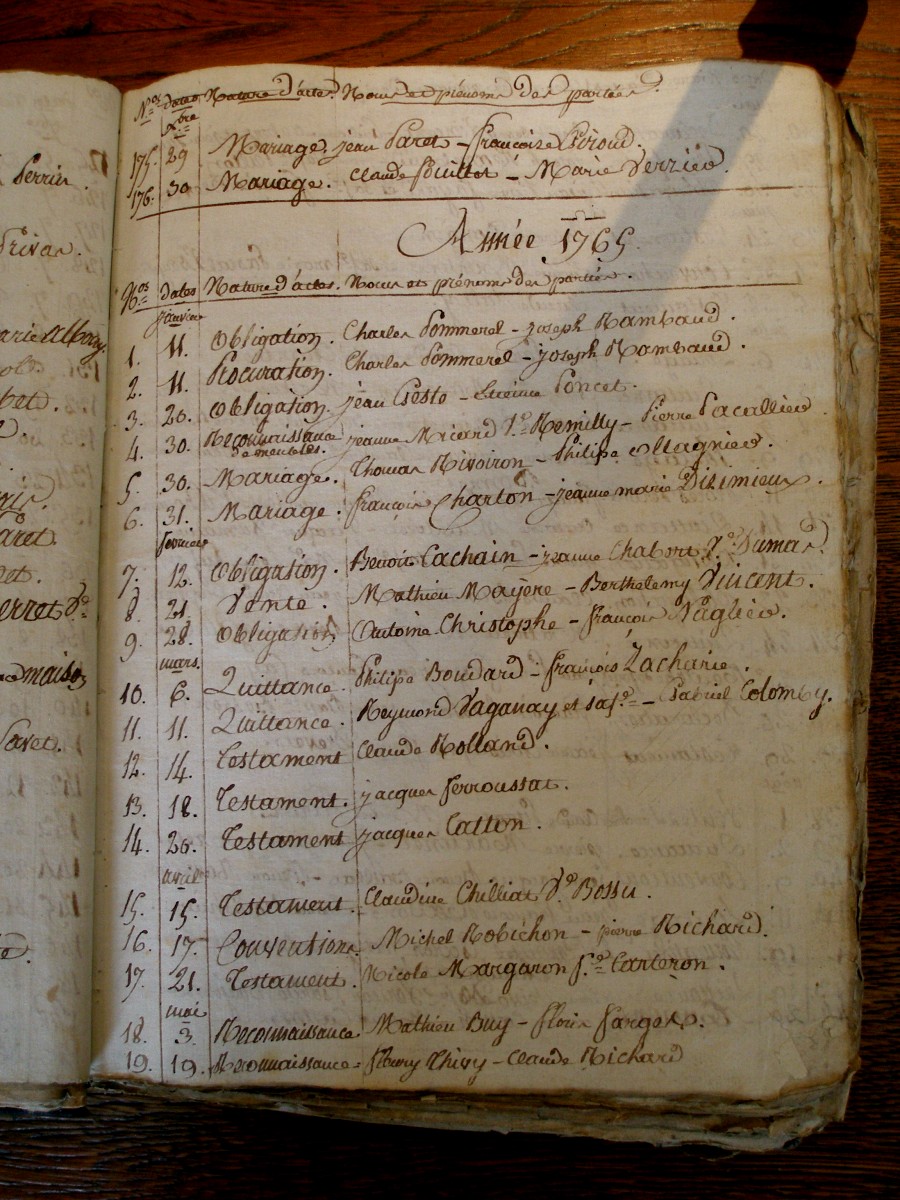 Perrin.
Privas.
marie
maison
Nos dates Nature d'actes. Noms et prénoms des parties.
xbre
175. 29 Mariage. jean Paret – françoise Piroud.
176. 30 Mariage. Claude – Marie Verzier.
Année 1765.
Nos dates Nature d'actes. Noms et prénoms des parties.
janvier
1. 11. Obligation. Charles Pommerel – joseph Rambaud.
2. 11. Procuration. Charles Pommerel – joseph Rambaud.
3. 20. Obligation. jean – Etienne Poncet.
4. 30. Reconnaissance de meubles. jeanne Ricard Remilly – Pierre Pacallier.
5. 30. Mariage. Thomas Rivoiron – Philipe Magnier.
6. 31. Mariage. françois Charton – jeanne marie Disimieux.
fevrier
7. 12. Obligation. Benoit Cachain – jeanne Chabert Ve. Dumas.
8. 21 Vente. Mathieu Mayère – Barthelemy Vincent.
9. 28. Obligation Antoine Christophe – françois
mars.
10. 6. Quittance. Philipe Boudard – françois Zacharie.
11. 11. Quittance. Reymond Vaganay et sa fe. – Gabriel Colomby.
12. 14. Testament Claude Rolland.
13. 18. Testament. jacques ferroussat.
14. 20. Testament jacques Catton.
avril
15. 15. Testament. Claudine Chilliat Ve. Bossu.
16. 17. Conventions. Michel Robichon – pierre Richard.
17. 21. Testament. Nicole Margaron fe. Carteron.
mai
18. 3. Reconnaissance. Mathieu Buy – floris farges.
19. 19. Reconnaissance. fleury Thivy – Claude Richard